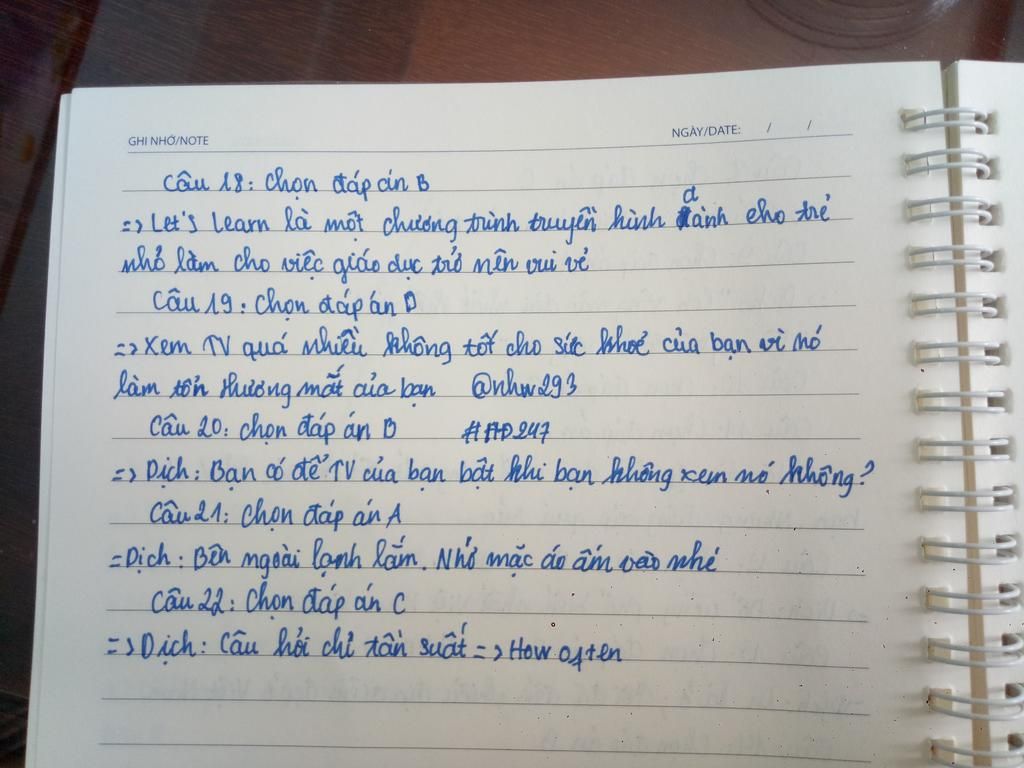 GHI NHỚ/NOTE
NGÀY/DATE: / /
Câu 18: Chọn đáp án B
=> Let's learn là một chương trình truyền hình dành cho trẻ
nhỏ làm cho việc giáo dục trở nên vui vẻ
Câu 19: Chọn đáp án D
=> Xem TV quá nhiều không tốt cho sức khoẻ của bạn vì nó
làm tổn thương mắt của bạn @nhw293
Câu 20: chọn đáp án D #HĐ247
=> Dịch: Bạn có để TV của bạn bật khi bạn không xem nó không?
Câu 21: Chọn đáp án A
= Dịch: Bên ngoài lạnh lắm. Nhớ mặc áo ấm vào nhé
Câu 22: Chọn đáp án C
=> Dịch: Câu hỏi chỉ tần suất => How often